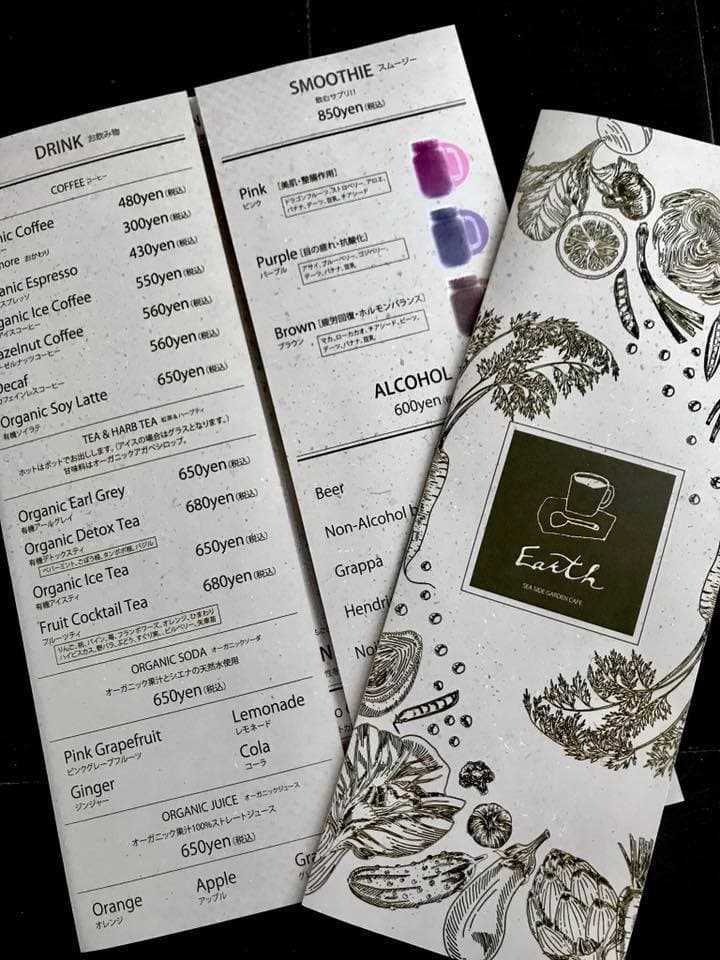 DRINK お飲み物
COFFEE コーヒー
nic Coffee 480yen(税込)
more おかわり 300yen(税込)
ganic Espresso 430yen(税込)
スプレッソ
rganic Ice Coffee 550yen(税込)
アイスコーヒー
azelnut Coffee 560yen(税込)
ーゼルナッツコーヒー
Decaf 560yen(税込)
カフェインレスコーヒー
Organic Soy Latte 650yen(税込)
有機ソイラテ
TEA & HARB TEA 紅茶&ハーブティ
ホットはポットでお出しします。(アイスの場合はグラスとなります。)
甘味料はオーガニックアガベシロップ。
Organic Earl Grey 650yen(税込)
有機アールグレイ
Organic Detox Tea 680yen(税込)
有機デトックスティ
ペパーミント、ごぼう根、タンポポ根、バジル
Organic Ice Tea 650yen(税込)
有機アイスティ
Fruit Cocktail Tea 680yen(税込)
フルーツティ
りんご、桃、パイン、苺、フランボワーズ、オレンジ、ひまわり
ハイビスカス、野バラ、ぶどう、すぐり実、ビルベリー、矢車菊
ORGANIC SODA オーガニックソーダ
オーガニック果汁とシエナの天然水使用
650yen(税込)
Pink Grapefruit Lemonade
ピンクグレープフルーツ レモネード
Ginger Cola
ジンジャー コーラ
ORGANIC JUICE オーガニックジュース
オーガニック果汁100%ストレートジュース
650yen(税込)
Orange Apple Gra
オレンジ アップル
SMOOTHIE スムージー
飲むサプリ!!
850yen(税込)
Pink [美肌・整腸作用]
ピンク
ドラゴンフルーツ、ストロベリー、アロエ、
バナナ、デーツ、豆乳、チアシード
Purple [目の疲れ・抗酸化]
パープル
アサイ、ブルーベリー、ゴジベリー、
デーツ、バナナ、豆乳
Brown [疲労回復・ホルモンバランス]
ブラウン
マカ、ローカカオ、チアシード、ビーツ、
デーツ、バナナ、豆乳
ALCOHOL
600yen
Beer
Non-Alcohol b
Grappa
Hendri
Earth
SEA SIDE GARDEN CAFE